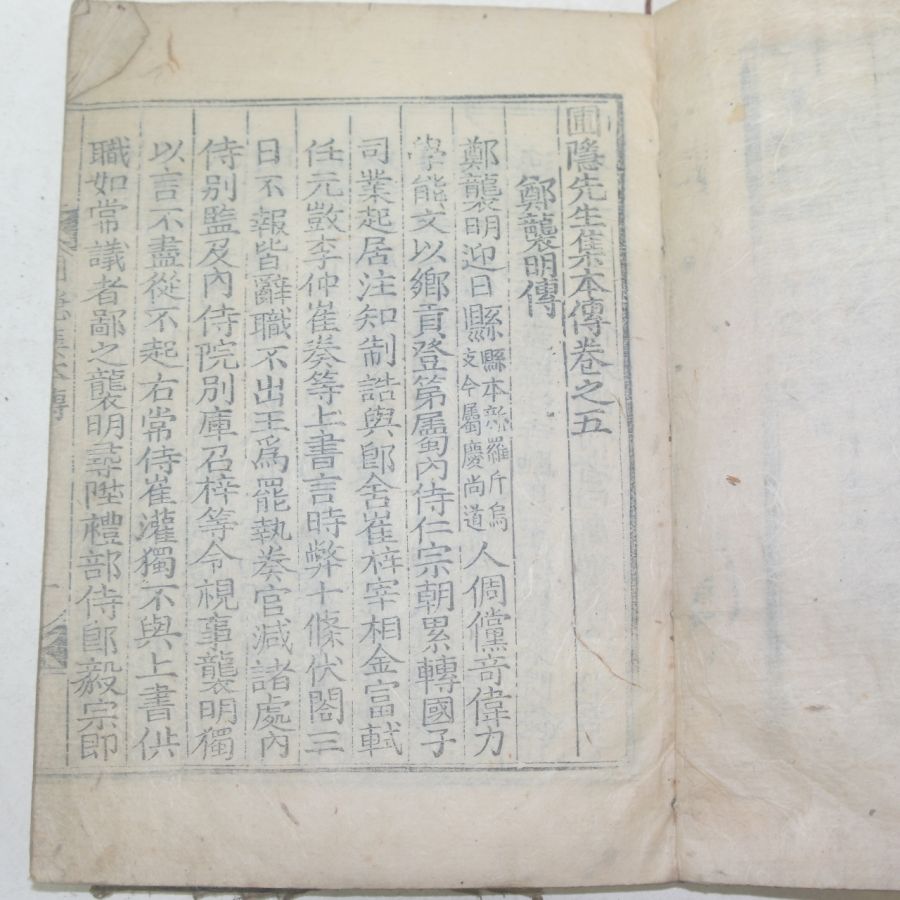 圃隱先生集本傳卷之五
鄭襲明傳
鄭襲明迎日縣縣本新羅斤烏支今屬慶尚道人倜儻奇偉力
學能文以鄉貢登第屬內侍仁宗朝累轉國子
司業起居注知制誥與郎舍崔梓宰相金富軾
任元敳李仲崔奏等上書言時弊十條伏閤三
日不報皆辭職不出王爲罷執奏官減諸處內
侍別監及內侍院別庫召梓等令視事襲明獨
以言不盡從不起右常侍崔灌獨不與上書供
職如常議者鄙之襲明尋陞禮部侍郎毅宗即